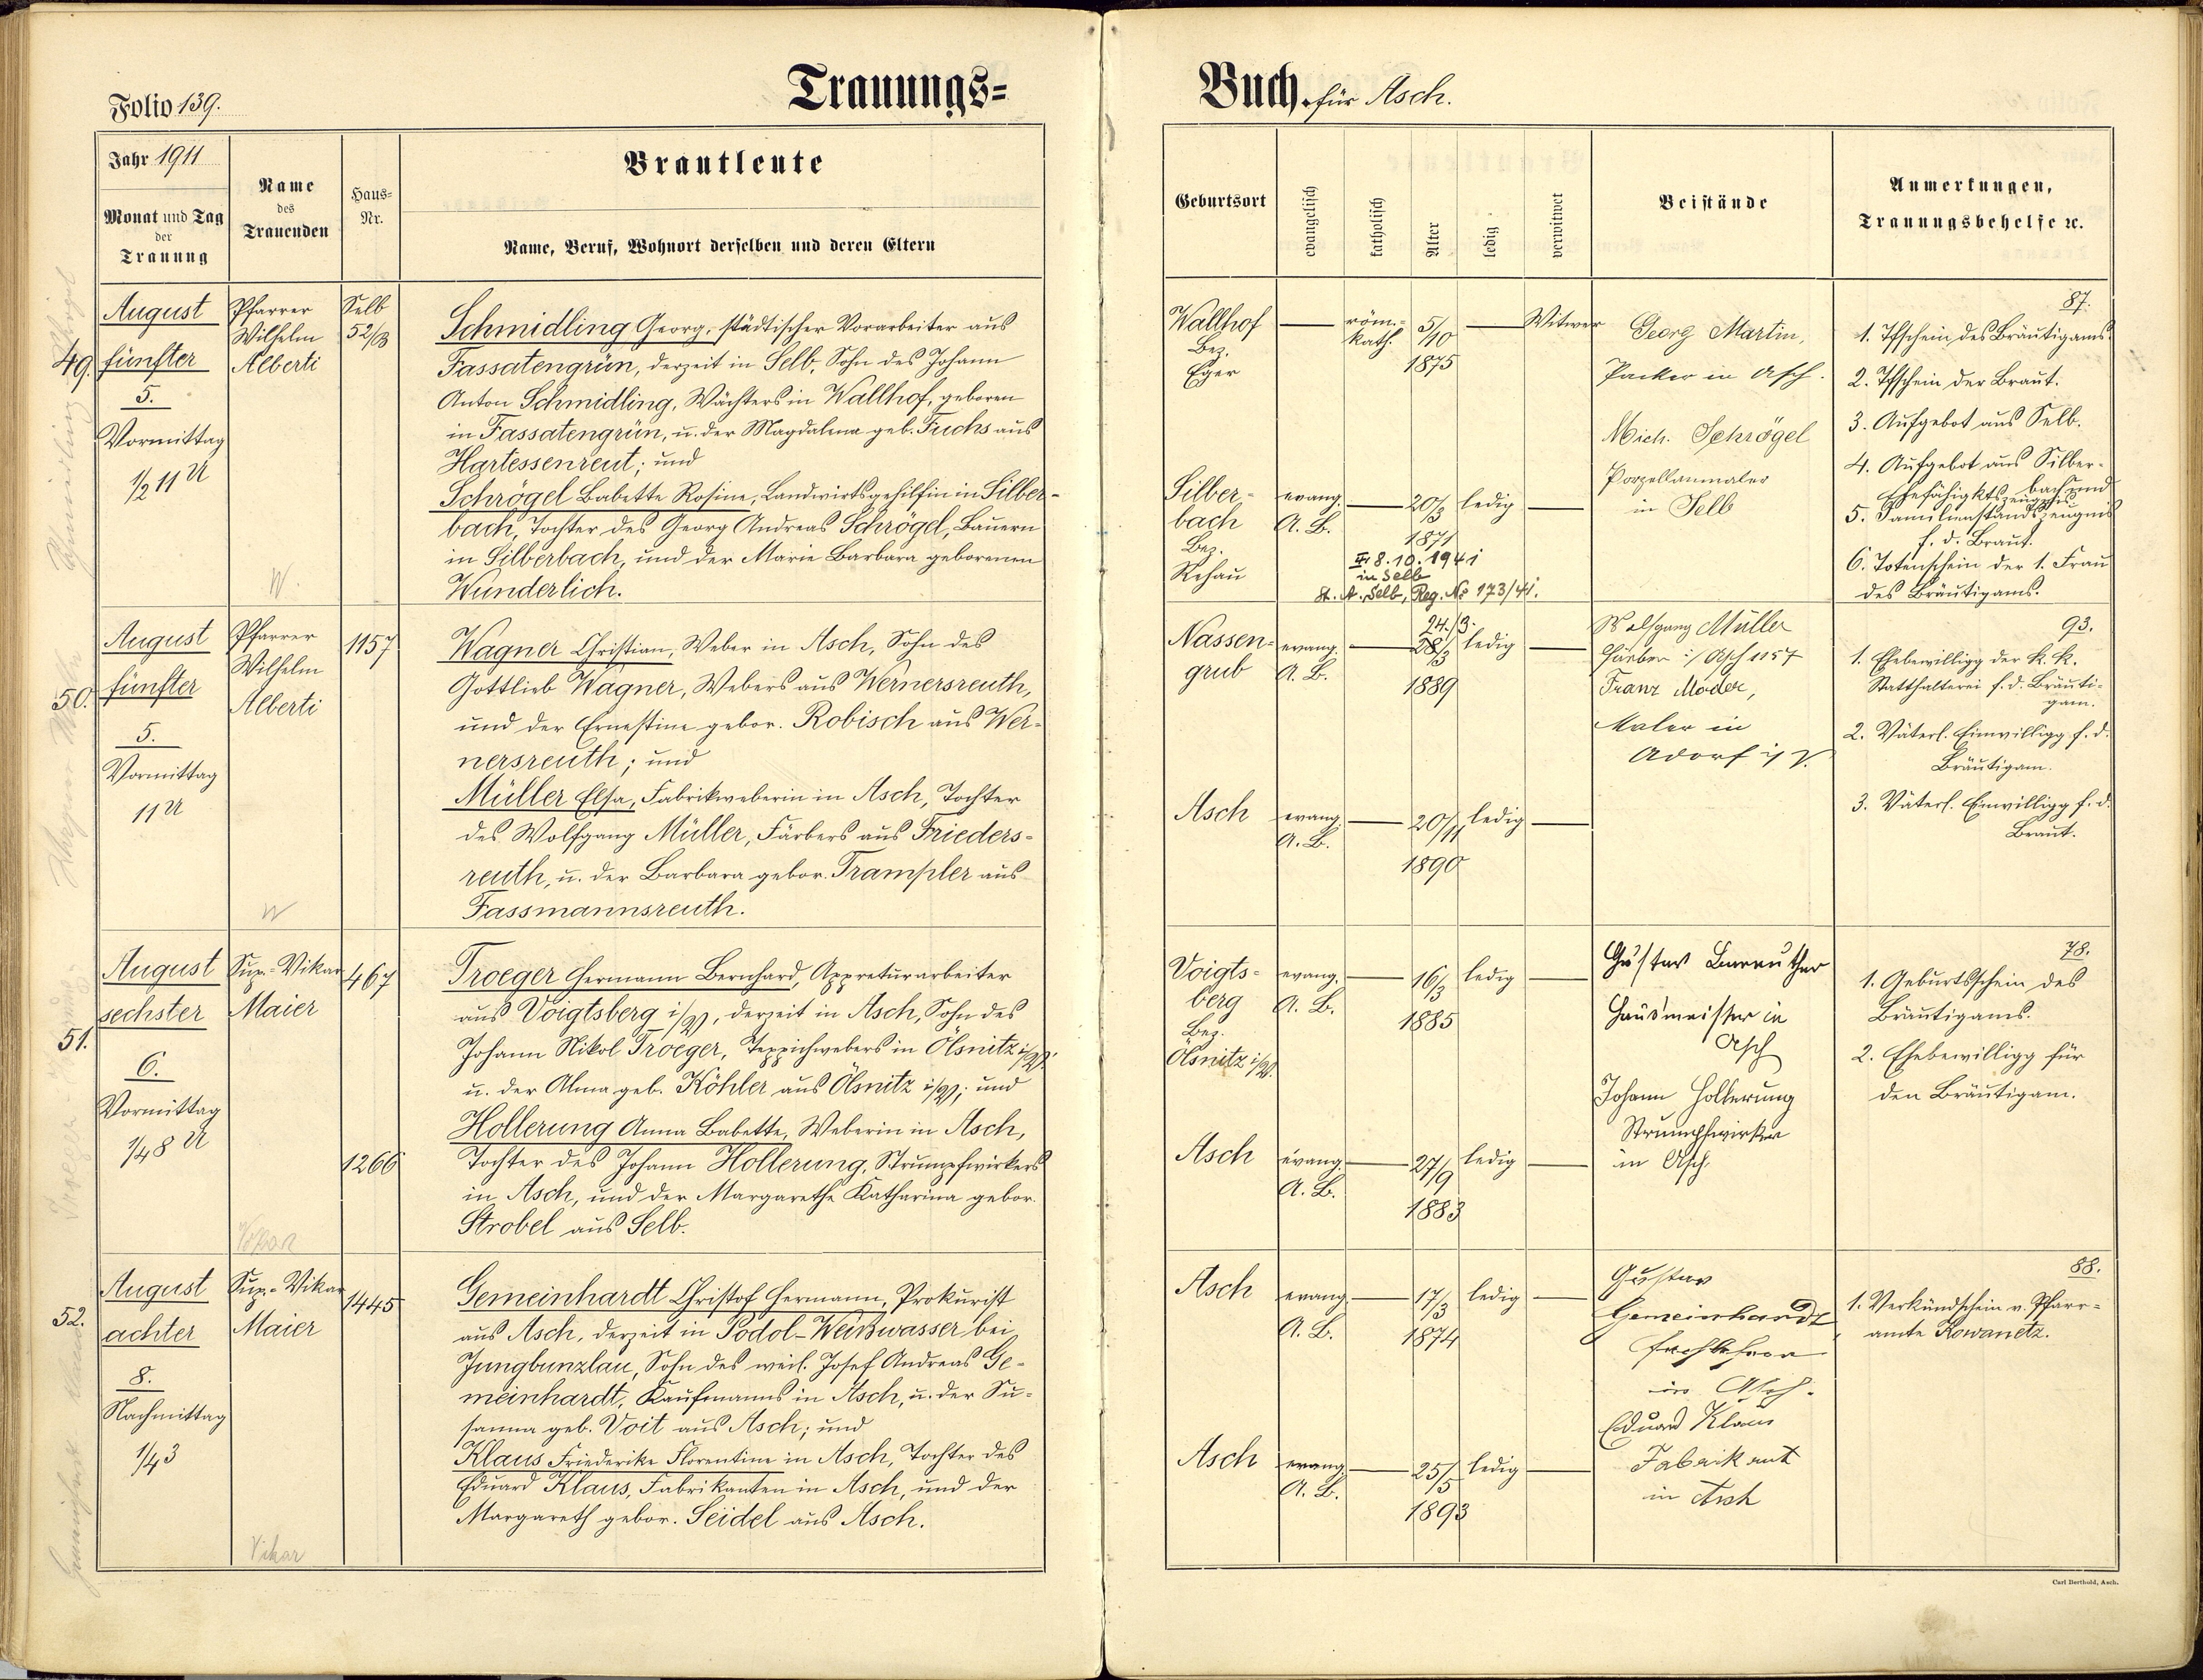 Folio 139.
Trauungs=
Jahr 1911
Monat und Tag
der
Trauung
Name
des
Trauenden
Haus=
Nr.
Brautleute
Name, Beruf, Wohnort derselben und deren Eltern
49.
August
fünfter
5.
Vormittag
1/2 11 U
Pfarrer
Wilhelm
Alberti
W.
Selb
52/B
Schmidling Georg, städtischer Vorarbeiter aus
Fassatengrün, derzeit in Selb, Sohn des Johann
Anton Schmidling, Wächters in Wallhof, geboren
in Fassatengrün, u. der Magdalena geb. Fuchs aus
Hartessenreut; und
Schrögel Babette Rosine, Landwirtsgehilfin in Silber-
bach, Tochter des Georg Andreas Schrögel, Bauern
in Silberbach, und der Marie Barbara geborenen
Wunderlich.
50.
August
fünfter
5.
Vormittag
11 U
Pfarrer
Wilhelm
Alberti
W
1157
Wagner Christian, Weber in Asch, Sohn des
Gottlieb Wagner, Webers aus Wernersreuth,
und der Ernestine gebor. Robisch aus Wer-
nersreuth; und
Müller Elsa, Fabrikweberin in Asch, Tochter
des Wolfgang Müller, Färbers aus Frieders-
reuth, u. der Barbara gebor. Trampler aus
Fassmannsreuth.
51.
August
sechster
6.
Vormittag
1/4 8 U
Sup.-Vikar
Maier
Vikar
467
1266
Troeger Hermann Bernhard, Appreturarbeiter
aus Voigtsberg i/V, derzeit in Asch, Sohn des
Johann Nikol Troeger, Teppichwebers in Ölsnitz i/V.
u. der Alma geb. Köhler aus Ölsnitz i/V; und
Hollerung Anna Babette, Weberin in Asch,
Tochter des Johann Hollerung, Strumpfwirkers
in Asch, und der Margarethe Katharina gebor.
Strobel aus Selb.
52.
August
achter
8.
Nachmittag
1/4 3
Sup.-Vikar
Maier
Vikar
1445
Gemeinhardt Christof Hermann, Prokurist
aus Asch, derzeit in Podol-Weißwasser bei
Jungbunzlau, Sohn des weil. Josef Andreas Ge-
meinhardt, Kaufmanns in Asch, u. der Su-
sanna geb. Voit aus Asch; und
Klaus Friederike Florentine in Asch, Tochter des
Eduard Klaus, Fabrikanten in Asch, und der
Margareth gebor. Seidel aus Asch.
Buch. für Asch.
Geburtsort
evangelisch
katholisch
Alter
ledig
verwitwet
Beistände
Anmerkungen,
Trauungsbehelfe ꝛc.
Wallhof
Bez.
Eger
röm.-
kath.
5/10
1875
Witwer
Silber-
bach
Bez.
Rehau
evang.
A. B.
20/3
1871
ledig
8.10.1941
in Selb
St. A. Selb, Reg. No 173/41.
Georg Martin,
Packer in Asch.
Mich. Schrögel
Porzellanmaler
in Selb
87.
1. Tfschein des Bräutigams.
2. Tfschein der Braut.
3. Aufgebot aus Selb.
4. Aufgebot aus Silber-
bach und
Ehefähigktszeugnis
5. Familienstandszeugnis
f. d. Braut.
6. Totenschein der 1. Frau
des Bräutigams.
Nassen-
grub
evang.
A. B.
24./3.
28/3
1889
ledig
Asch
evang.
A. B.
20/11
1890
ledig
Wolfgang Müller
Färber i/ Asch 1157
Franz Moder,
Maler in
Adorf i/ V.
93.
1. Ehebewilligg der k. k.
Statthalterei f. d. Bräuti-
gam.
2. Väterl. Einwilligg f. d.
Bräutigam.
3. Väterl. Einwilligg f. d.
Braut.
Voigts-
berg
Bez.
Ölsnitz i/V.
evang.
A. B.
16/3
1885
ledig
Asch
evang.
A. B.
27/9
1883
ledig
Gustav Bareuther
Hausmeister in
Asch
Johann Hollerung
Strumpfwirker
in Asch.
78.
1. Geburtsschein des
Bräutigams.
2. Ehebewilligg für
den Bräutigam.
Asch
evang.
A. B.
17/3
1874
ledig
Asch
evang.
A. B.
25/5
1893
ledig
Gustav
Gemeinhardt
Fachlehrer
in Asch.
Eduard Klaus
Fabrikant
in Asch
88.
1. Verkündschein v. Pfarr-
amte Kowanetz.
Carl Berthold, Asch.